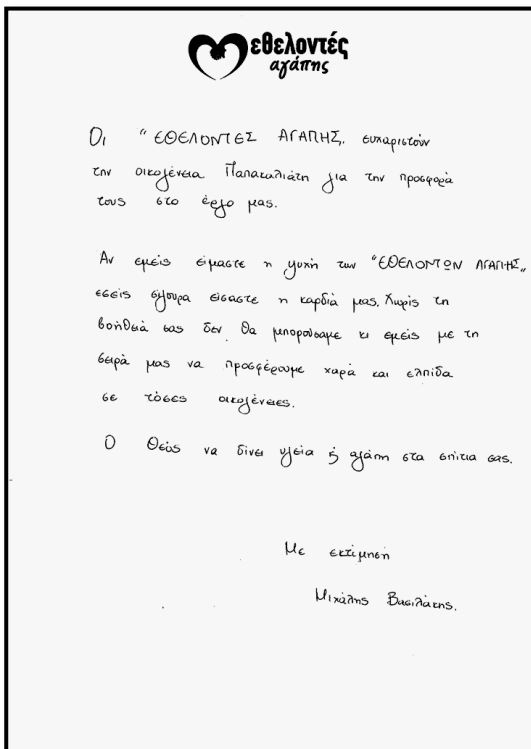 εθελοντές
αγάπης
Οι "ΕΘΕΛΟΝΤΕΣ ΑΓΑΠΗΣ, ευχαριστούν
την οικογένεια Παπακαλιάτη για την προσφορά
τους στο έργο μας.
Αν εμείς είμαστε η ψυχή των "ΕΘΕΛΟΝΤΩΝ ΑΓΑΠΗΣ"
εσείς σίγουρα είσαστε η καρδιά μας. Χωρίς τη
βοήθειά σας δεν θα μπορούσαμε κι εμείς με τη
σειρά μας να προσφέρουμε χαρά και ελπίδα
σε τόσες οικογένειες.
Ο Θεός να δίνει υγεία & αγάπη στα σπίτια σας.
Με εκτίμηση
Μιχάλης Βασιλάκης.